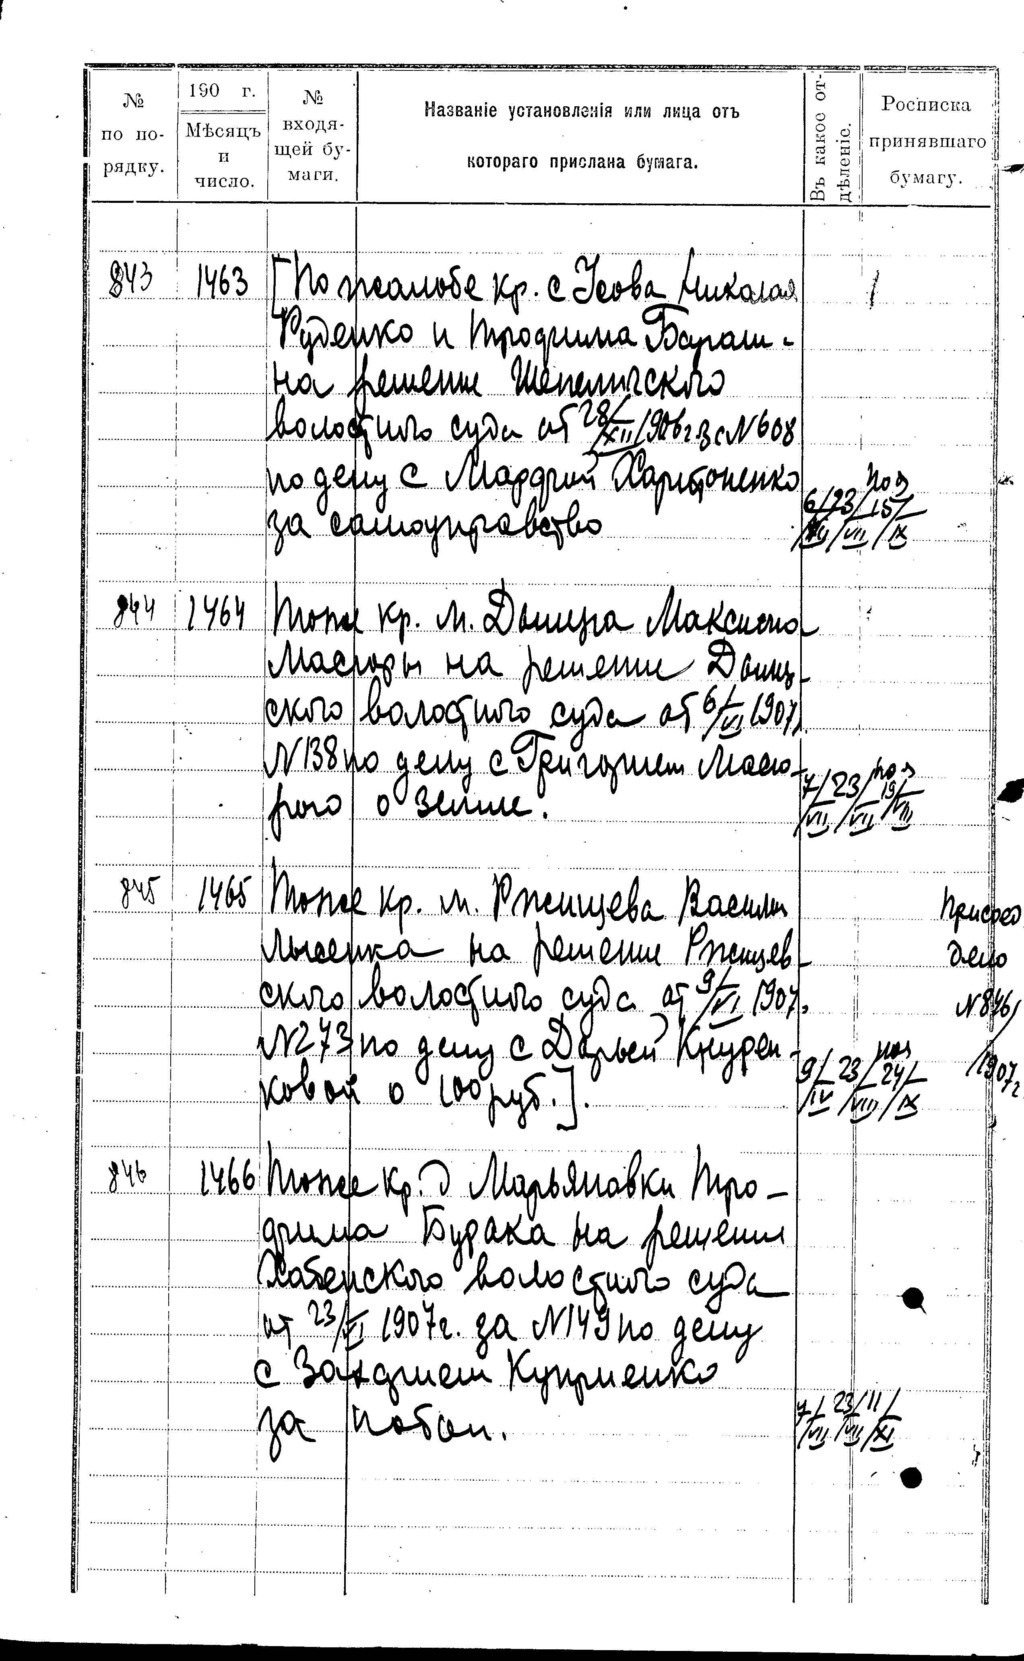 № по порядку.
190 г. Мѣсяцъ и число.
№ входящей бумаги.
Названіе установленія или лица отъ
котораго прислана бумага.
Въ какое отдѣленіе.
Росписка принявшаго бумагу.
843 1463 [По жалобе кр. с Усова Николая
Руденко и Трофима Бараш-
на решение Шепеличского
волостного суда от 28/XII 1906 г за N 608
по делу с Марфой Харитоненко
за самоуправство
6/VII 23/VII 15/IX
844 1464 Тоже кр. м. Дымера Максима
на решение Дымер-
ского волостного суда от 6/VI 1907
N 138 по делу с Григорием
о земле.
7/VII 23/VII 19/VIII
845 1465 Тоже кр. м. Ржищева Василия
Лысенка на решение Ржищев-
ского волостного суда от 9/VI 1907.
N 273 по делу с Дарьей
ковой о 100 руб.].
9/IV 23/VII 24/IX
Присоед
дело
N 846/
1907 г
846 1466 Тоже кр. д Марьяновки Тро-
фима Бурака на решение
Хабенского волостного суда
от 23/VI 1907 г. за N 149 по делу
с Куприенко
за побои.
7/VII 23/VII 11/XI